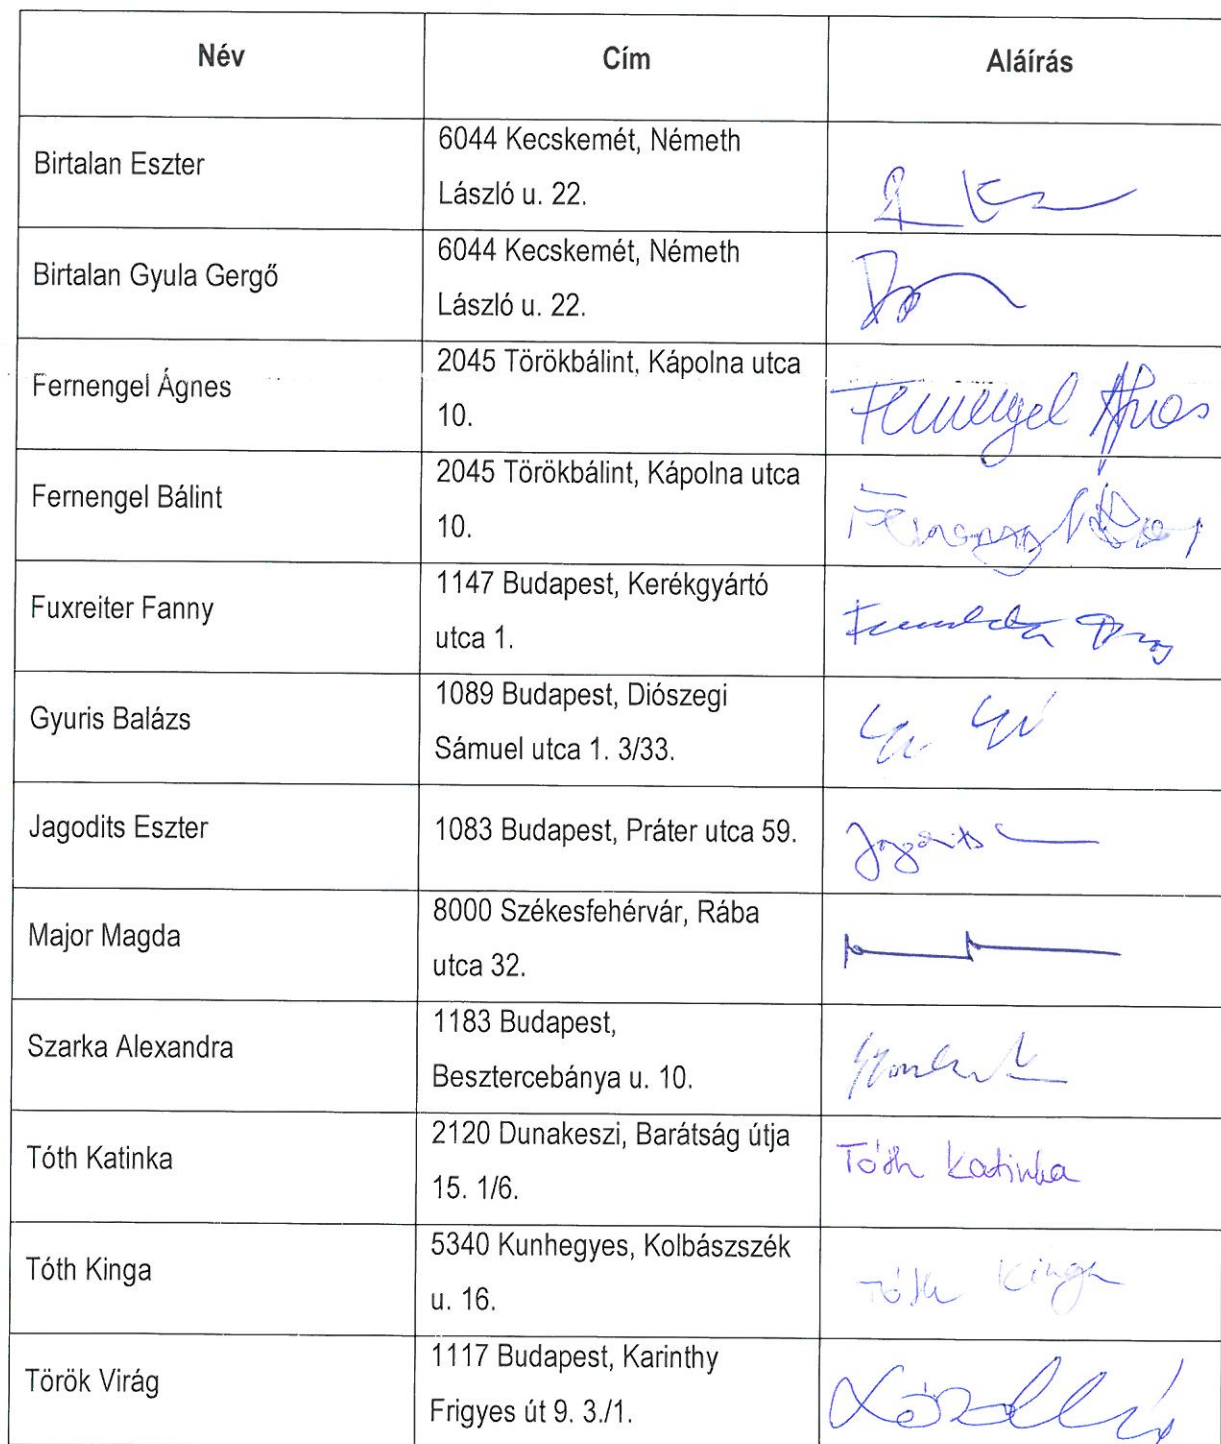 Név Cím Aláírás
Birtalan Eszter
6044 Kecskemét, Németh
László u. 22.
Birtalan Gyula Gergő
6044 Kecskemét, Németh
László u. 22.
Fernengel Ágnes
2045 Törökbálint, Kápolna utca
10.
Fernengel Bálint
2045 Törökbálint, Kápolna utca
10.
Fuxreiter Fanny
1147 Budapest, Kerékgyártó
utca 1.
Gyuris Balázs
1089 Budapest, Diószegi
Sámuel utca 1. 3/33.
Jagodits Eszter
1083 Budapest, Práter utca 59.
Jagodits
Major Magda
8000 Székesfehérvár, Rába
utca 32.
Szarka Alexandra
1183 Budapest,
Besztercebánya u. 10.
Tóth Katinka
2120 Dunakeszi, Barátság útja
15. 1/6.
Tóth Katinka
Tóth Kinga
5340 Kunhegyes, Kolbászszék
u. 16.
Tóth Kinga
Török Virág
1117 Budapest, Karinthy
Frigyes út 9. 3./1.